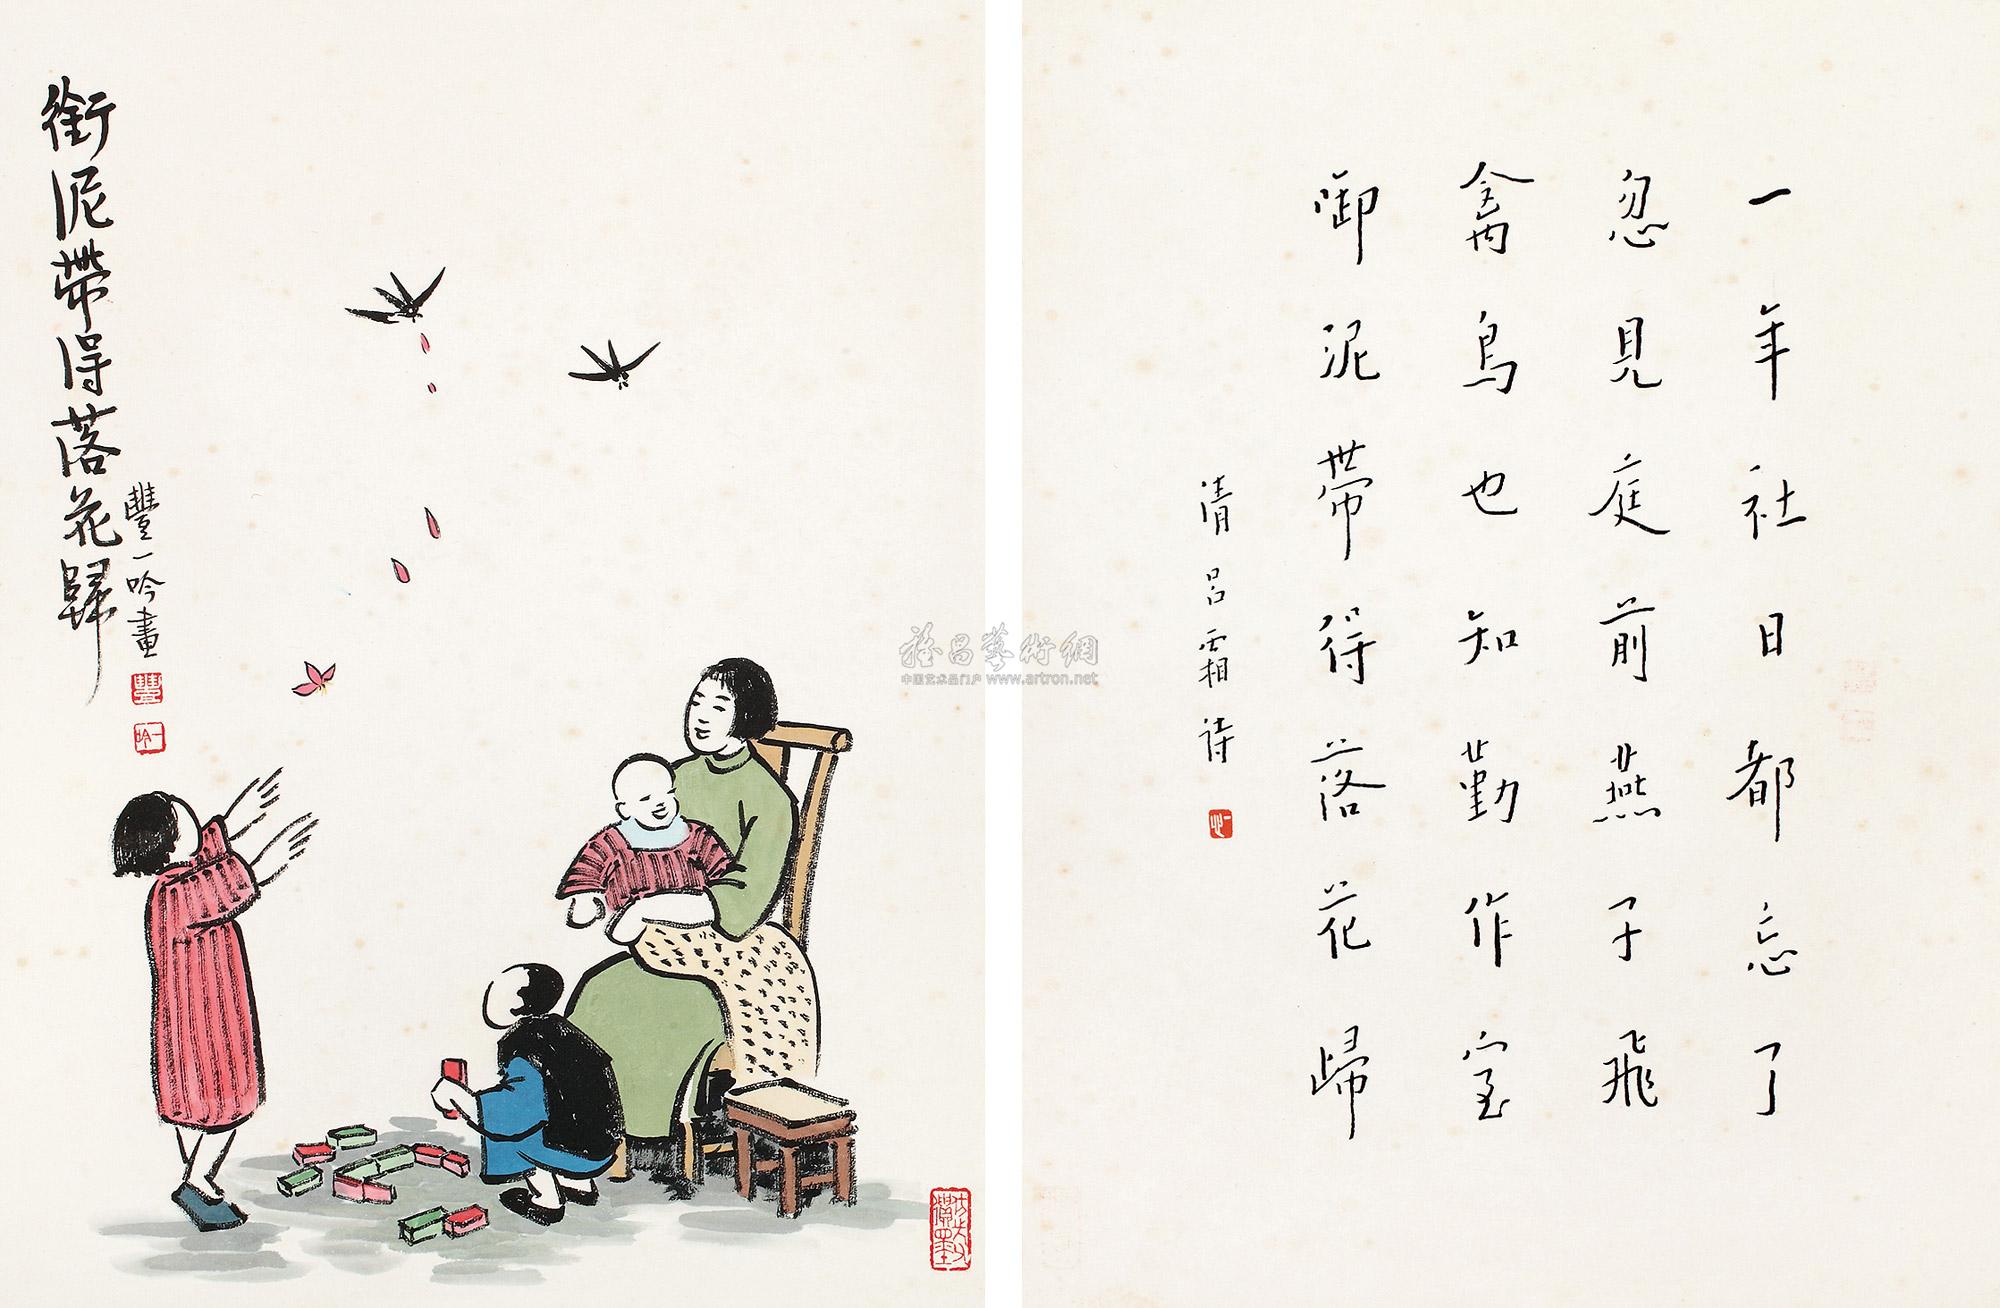 衔泥帶得落花歸
豐一吟畫
豐
一吟
一年社日都忘了
忽見庭前燕子飛
禽鳥也知勤作室
啣泥帶得落花歸
清 呂霜詩
雅昌藝術網
中国艺术品门户 www.artron.net